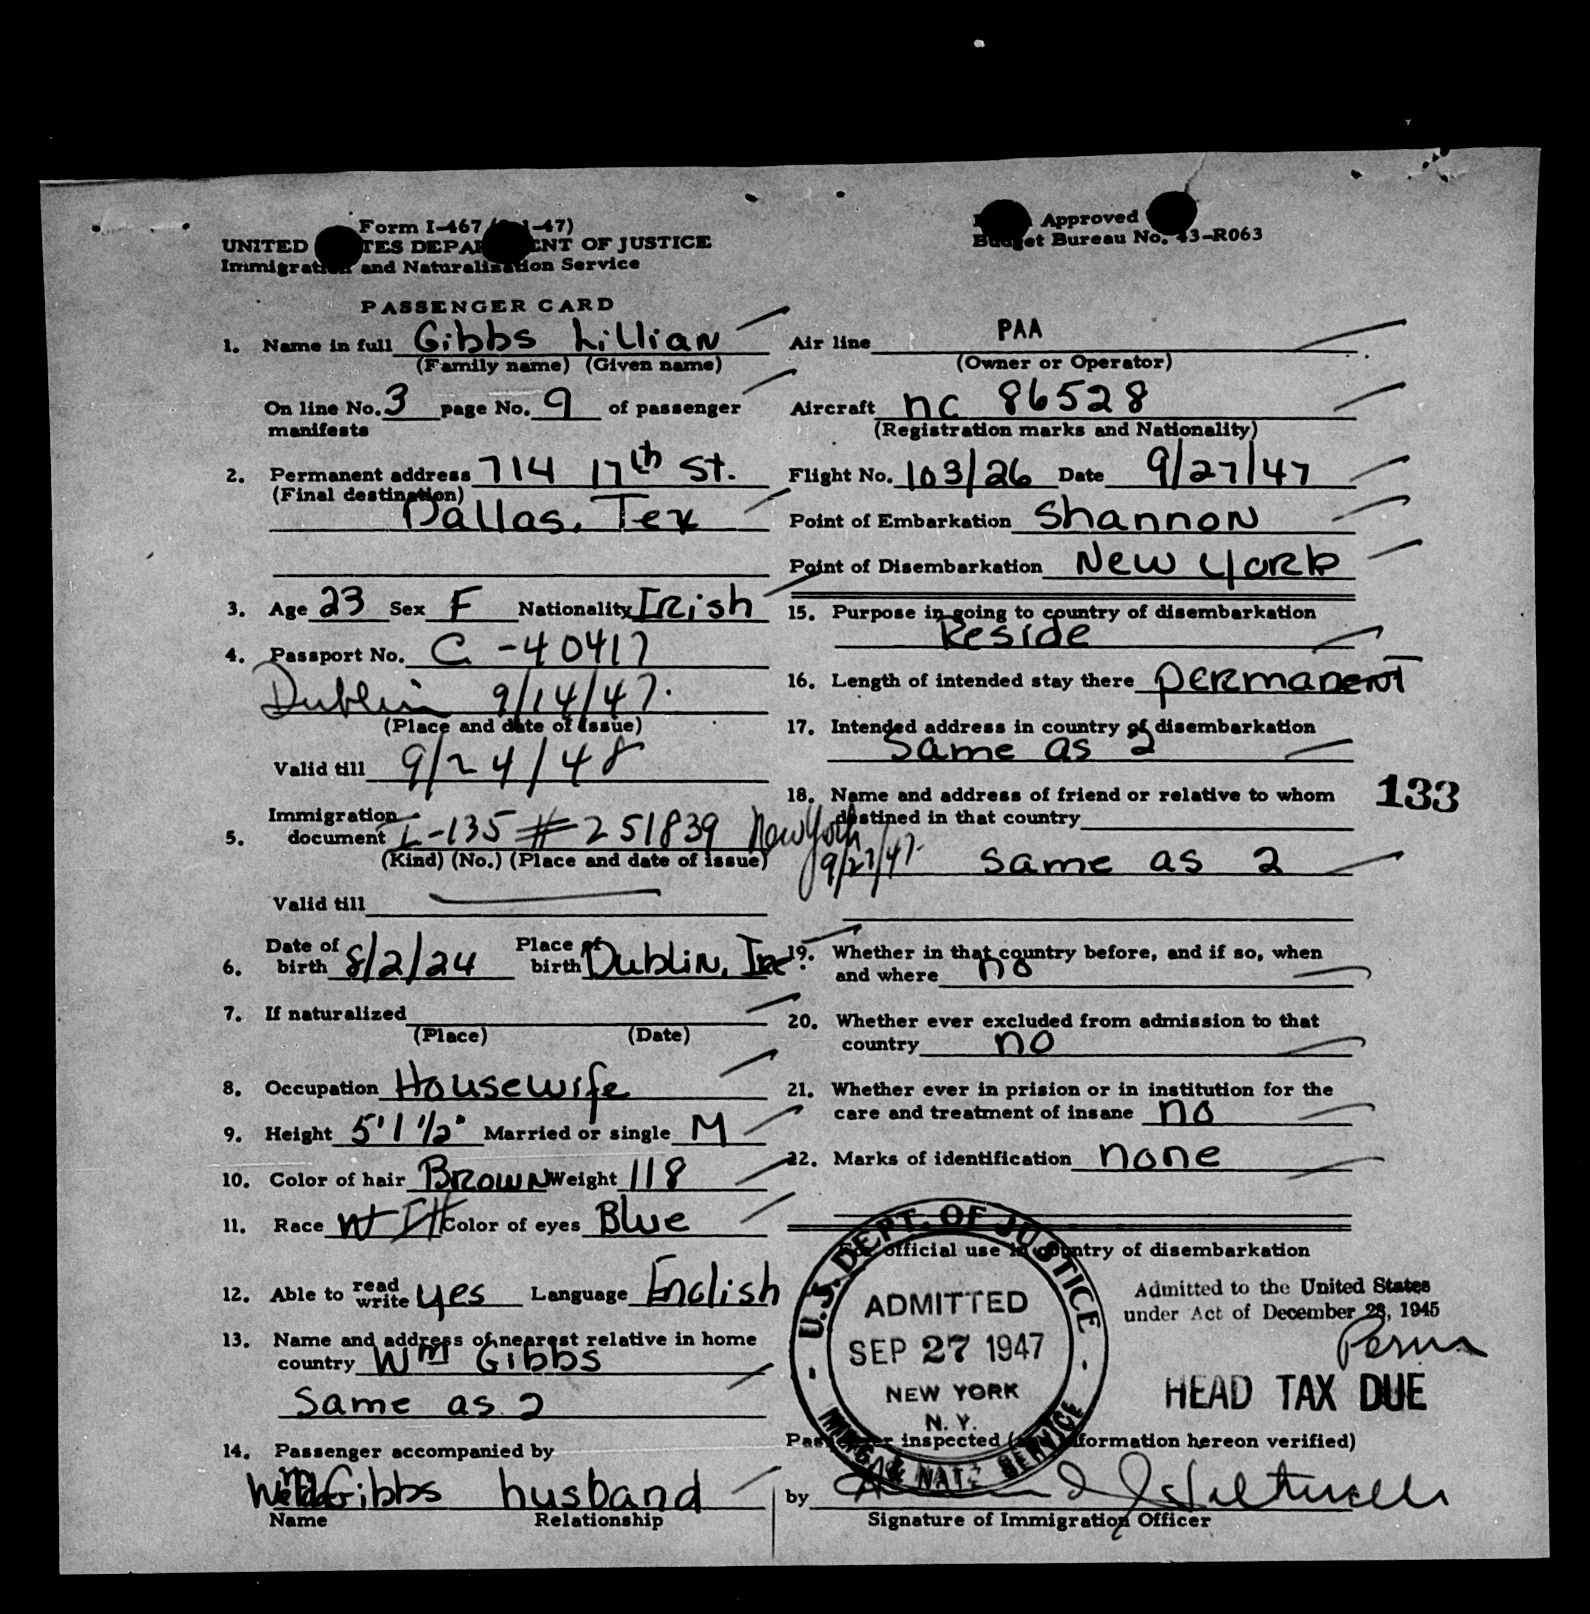 Form I-467 (-47)
UNITED TES DEPA ENT OF JUSTICE
Immigration and Naturalization Service
PASSENGER CARD
1. Name in full Gibbs Lillian
(Family name) (Given name)
On line No. 3 page No. 9 of passenger
manifests
2. Permanent address 714 17th St.
(Final destination)
Dallas, Tex
3. Age 23 Sex F Nationality Irish
4. Passport No. C-40417
Dublin 9/14/47.
(Place and date of issue)
Valid till 9/24/48
5. Immigration
document I-135 # 251839 New York
9/27/47.
(Kind) (No.) (Place and date of issue)
Valid till
6. Date of birth 8/2/24 Place of birth Dublin, Ire
7. If naturalized
(Place) (Date)
8. Occupation Housewife
9. Height 5'1 1/2" Married or single M
10. Color of hair Brown Weight 118
11. Race W Color of eyes Blue
12. Able to read write yes Language English
13. Name and address of nearest relative in home
country Wm Gibbs
Same as 2
14. Passenger accompanied by
Wm Gibbs husband
Name Relationship
Approved
Budget Bureau No. 43-R063
Air line PAA
(Owner or Operator)
Aircraft nc 86528
(Registration marks and Nationality)
Flight No. 103/26 Date 9/27/47
Point of Embarkation Shannon
Point of Disembarkation New York
15. Purpose in going to country of disembarkation
Reside
16. Length of intended stay there permanent
17. Intended address in country of disembarkation
Same as 2
18. Name and address of friend or relative to whom
destined in that country
same as 2
133
19. Whether in that country before, and if so, when
and where no
20. Whether ever excluded from admission to that
country no
21. Whether ever in prision or in institution for the
care and treatment of insane no
22. Marks of identification none
For official use in country of disembarkation
U.S. DEPT. OF JUSTICE
ADMITTED
SEP 27 1947
NEW YORK
N. Y.
IMMG. & NATZ SERVICE
Admitted to the United States
under Act of December 28, 1945
Perm
HEAD TAX DUE
Passenger inspected (and information hereon verified)
by
Signature of Immigration Officer